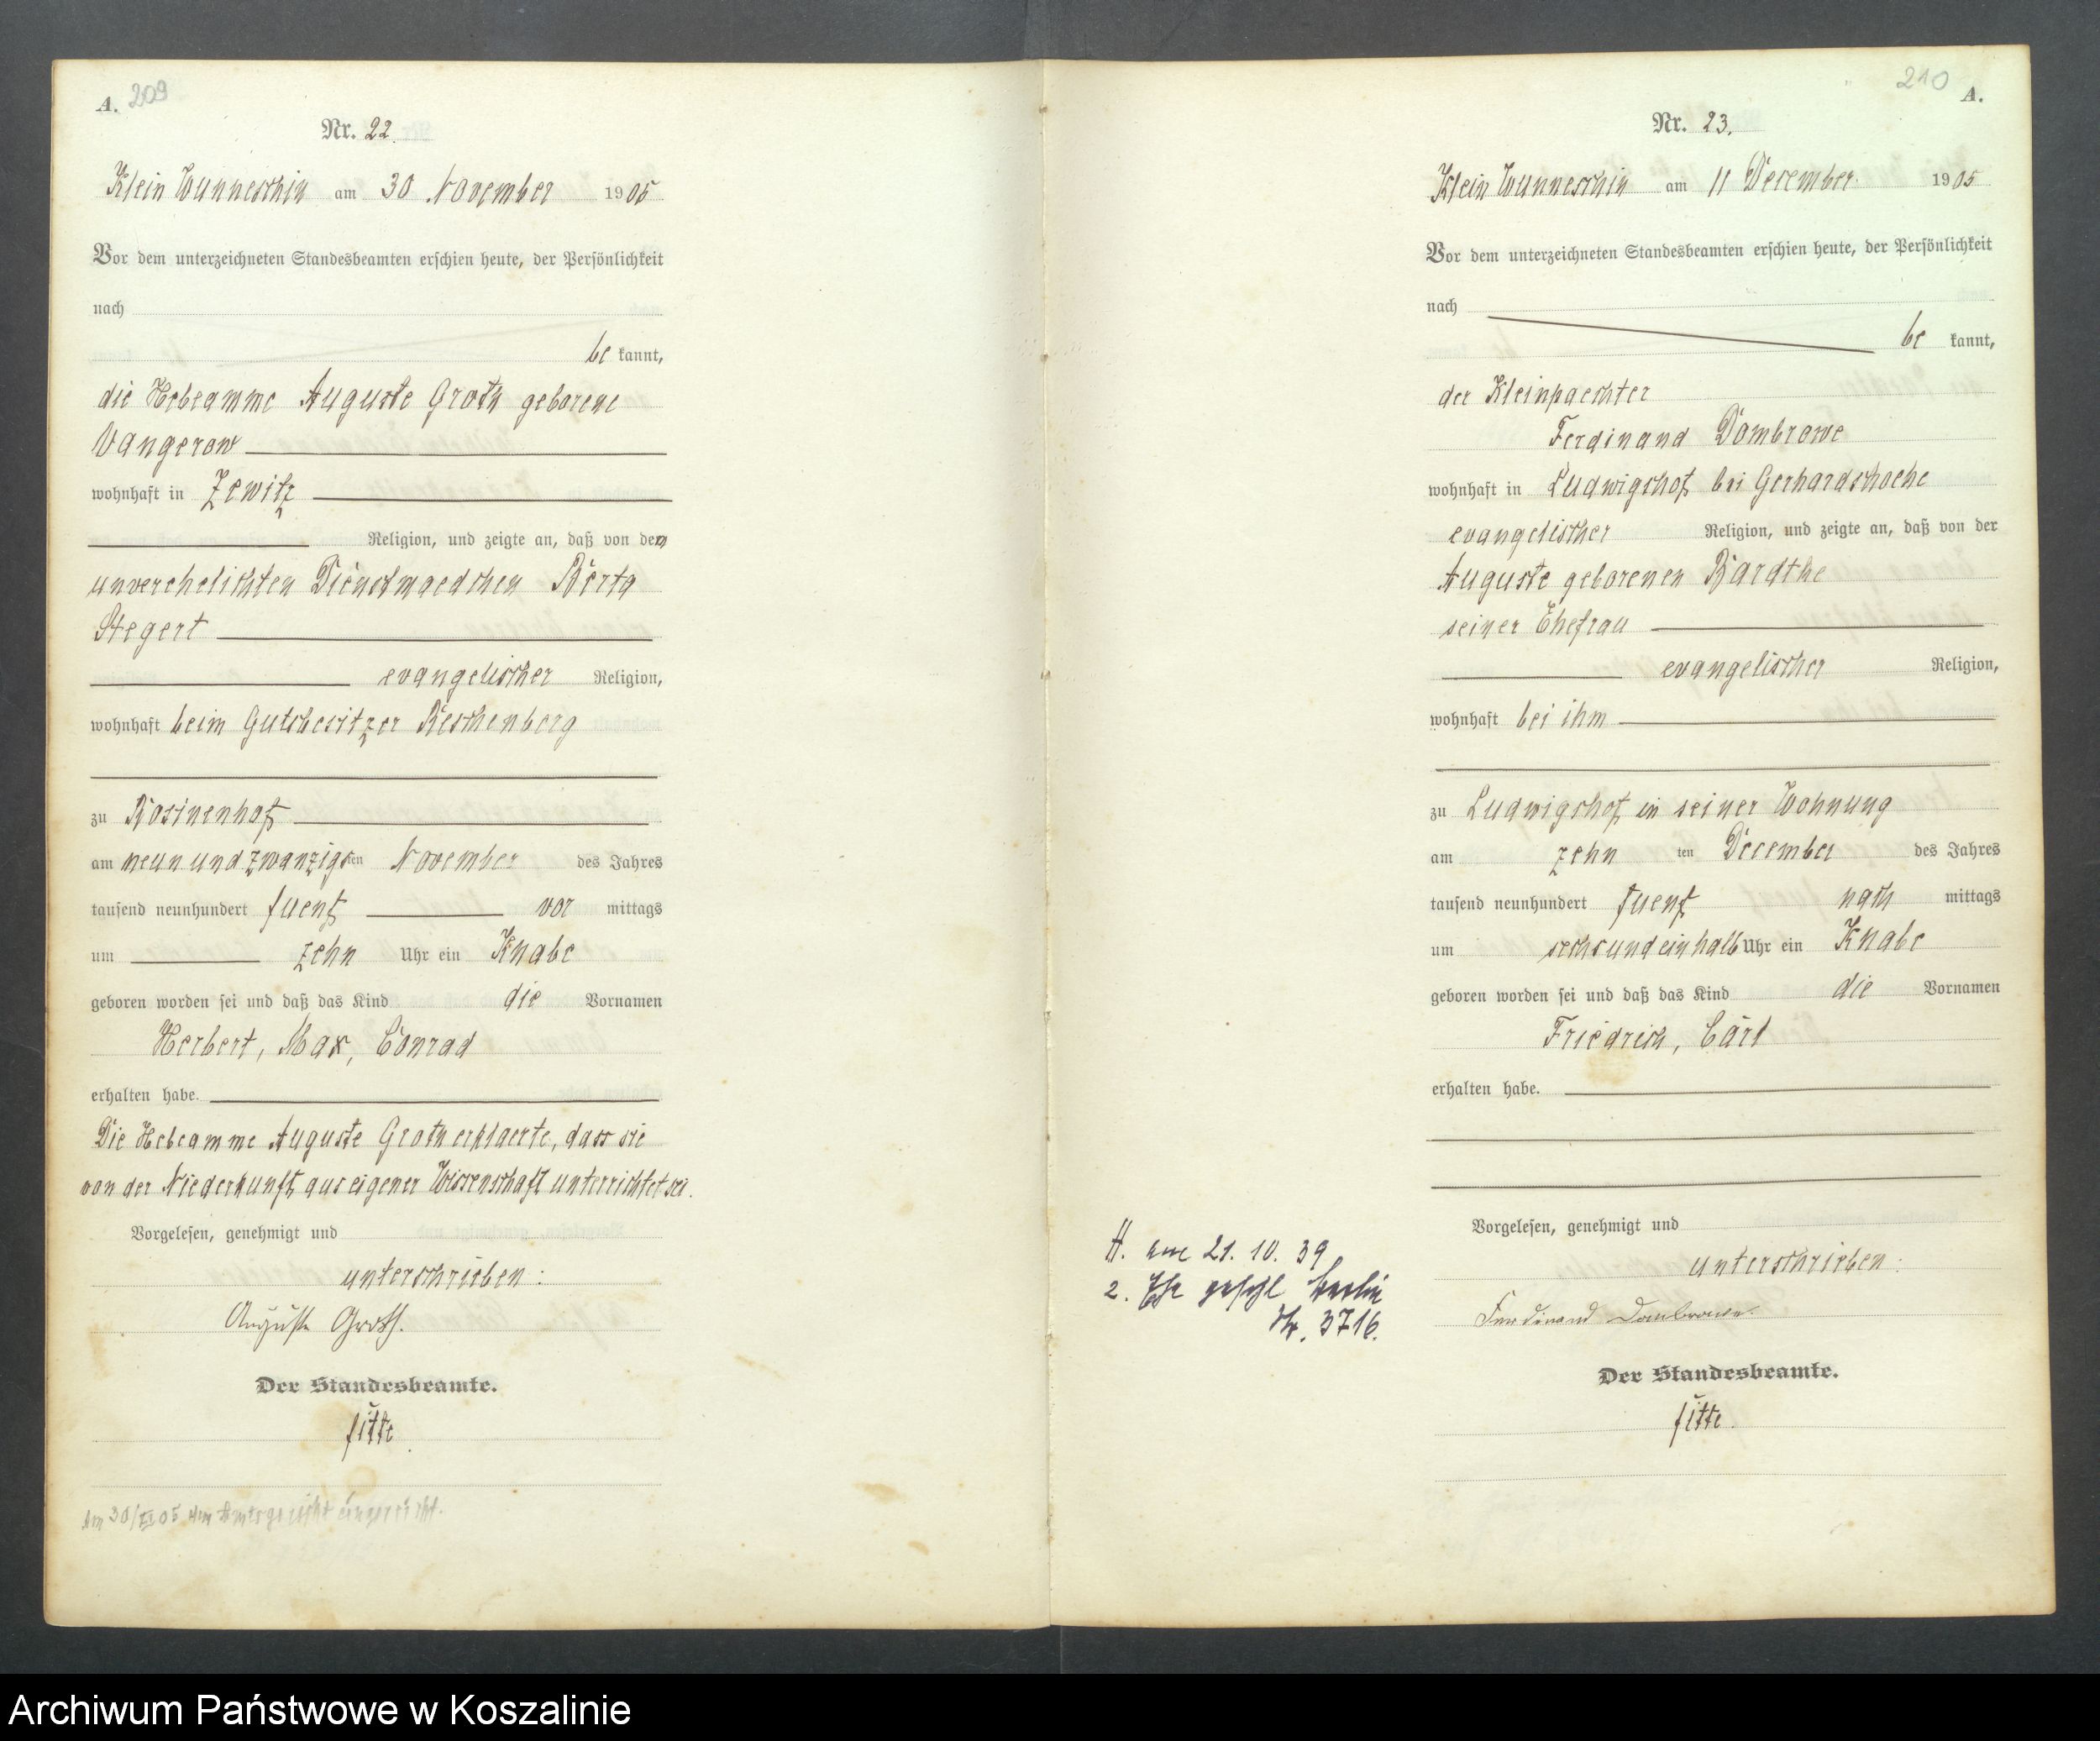 A. 209
Nr. 22.
Klein Wunneschin am 30 November 1905
Vor dem unterzeichneten Standesbeamten erschien heute, der Persönlichkeit
nach
be kannt,
die Hebeamme Auguste Groth geborene
Vangerow
wohnhaft in Zewitz
Religion, und zeigte an, daß von den
unverehelichten Dienstmaedchen Berta
Stegert
evangelischer Religion,
wohnhaft beim Gutsbesitzer Reschenberg
zu Rosinenhof
am neun und zwanzigsten November des Jahres
tausend neunhundert fuenf vor mittags
um zehn Uhr ein Knabe
geboren worden sei und daß das Kind die Vornamen
Herbert, Max, Conrad
erhalten habe.
Die Hebeamme Auguste Groth erklaerte, dass sie
von der Niederkunft aus eigener Wissenschaft unterrichtet sei.
Vorgelesen, genehmigt und
unterschrieben:
Auguste Groth.
Der Standesbeamte.
Fitte
Am 30/XI 05 dem Amtsgericht eingereicht.
210 A.
Nr. 23.
Klein Wunneschin am 11 December 1905
Vor dem unterzeichneten Standesbeamten erschien heute, der Persönlichkeit
nach
be kannt,
der Kleinpaechter
Ferdinand Dombrowe
wohnhaft in Ludwigshof bei Gerhardshoehe
evangelischer Religion, und zeigte an, daß von der
Auguste geborenen Bardthe
seiner Ehefrau
evangelischer Religion,
wohnhaft bei ihm
zu Ludwigshof in seiner Wohnung
am zehn ten December des Jahres
tausend neunhundert fuenf nach mittags
um sechs und ein halb Uhr ein Knabe
geboren worden sei und daß das Kind die Vornamen
Friedrich, Carl
erhalten habe.
Vorgelesen, genehmigt und
unterschrieben:
Ferdinand Dombrowe.
Der Standesbeamte.
Fitte.
H. am 21. 10. 39
2. Ehe geschl Berlin
Nr. 3716.
Archiwum Państwowe w Koszalinie